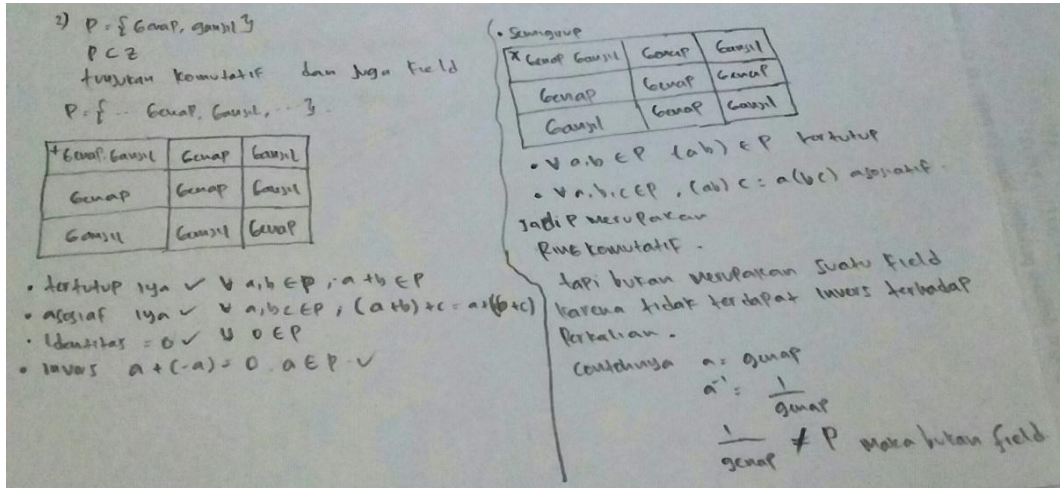 2) P = { Genap, ganjil }
P ⊂ Z
tunjukan komutatif dan juga field
P = { ... Genap, Ganjil, ... }.
+ Genap Ganjil | Genap | Ganjil
Genap | Genap | Ganjil
Ganjil | Ganjil | Genap
• tertutup iya ✓ ∀ a,b ∈ P ; a + b ∈ P
• asosiaf iya ✓ ∀ a,b,c ∈ P ; (a+b)+c = a+(b+c)
• Identitas = 0 ✓ 0 ∈ P
• invers a + (-a) = 0 . a ∈ P . ✓
• Semigrup
x Genap Ganjil | Genap | Ganjil
Genap | Genap | Genap
Ganjil | Genap | Ganjil
• ∀ a,b ∈ P (ab) ∈ P tertutup
• ∀ a,b,c ∈ P , (ab) c = a(bc) asosiatif.
Jadi P merupakan
Ring komutatif .
tapi bukan merupakan suatu field
karena tidak terdapat invers terhadap
Perkalian .
contohnya a = genap
a⁻¹ = 1/genap
1/genap ≠ P maka bukan field